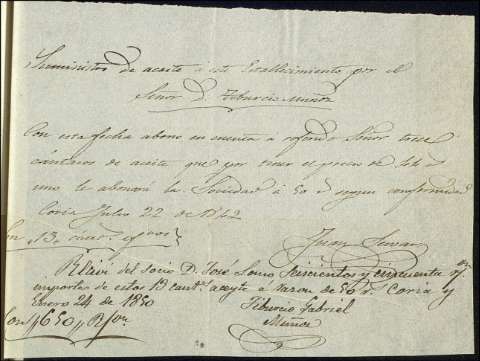 Suministro de aceite á este Establecimiento por el
Señor D. Tiburcio Muñoz
Con esta fecha abono en cuenta á referido Señor trece
cántaros de aceite que por tener el precio de
uno le abonará la Sociedad á 50 r según conformidad
Coria Julio 22 de 1842
Son 13, cant
Juan
Reciví del socio D. José Seiscientos y cincuenta
importes de estos 13 cant.s aceyte á razon de 50 r.s Coria y
Enero 24 de 1850
Tiburcio Gabriel
Muñoz
Son 650 R.s von